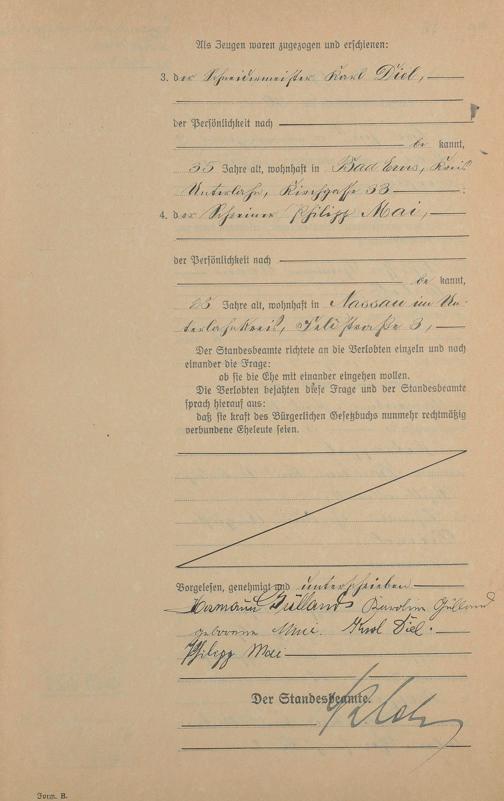 Als Zeugen waren zugezogen und erschienen:
3. der Schneidermeister Karl Diel,
der Persönlichkeit nach
be kannt,
35 Jahre alt, wohnhaft in Bad Ems, Kreis
Unterlahn, Kirchgasse 33
4. der Schreiner Philipp Mai,
der Persönlichkeit nach
be kannt,
Jahre alt, wohnhaft in Nassau im Un-
terlahnkreis, Feldstraße 3,
Der Standesbeamte richtete an die Verlobten einzeln und nach
einander die Frage:
ob sie die Ehe mit einander eingehen wollen.
Die Verlobten bejahten diese Frage und der Standesbeamte
sprach hierauf aus:
daß sie kraft des Bürgerlichen Gesetzbuchs nunmehr rechtmäßig
verbundene Eheleute seien.
Vorgelesen, genehmigt und unterschrieben
Hermann Karoline
geborene Mai. Karl Diel.
Philipp Mai
Der Standesbeamte.
Form. B.